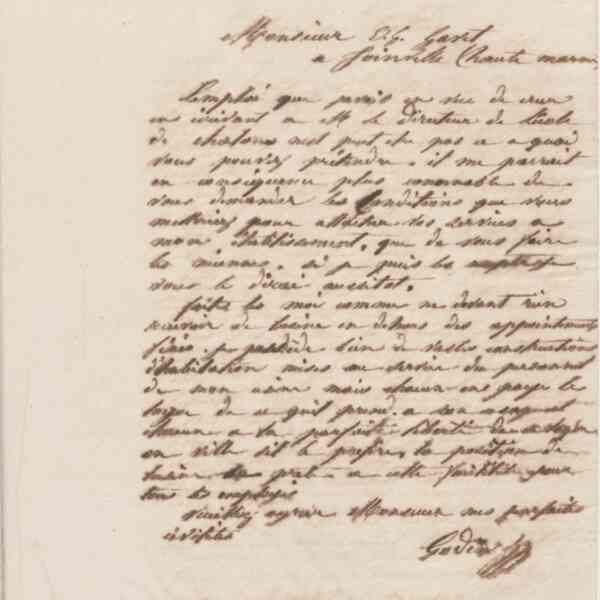 Monsieur E. G. Gavet
a Joinville (haute marne
L'emploi que j'avais en vue de creer
en ecrivant a Mr le Directeur de l'école
de chalons n'est peut etre pas ce a quoi
vous pouvez prétendre. il me parrait
en conséquence plus convenable de
vous demander les Conditions que vous
mettriez pour attacher vos services a
mon établissement, que de vous faire
les miennes. si je puis les accepter je
vous le dirai aussitot.
faites les moi comme ne devant rien
recevoir de l'usine en dehors des appointements
fixés. je possède bien de vastes constructions
d'habitation mises au service du personnel
de mon usine mais chacun en paye le
loyer de ce qu'il prend. a son
chacun a la parfaite liberté de se loger
en ville s'il le prefère, la position de
l'usine se prete a cette facilité pour
tous les employés
veuillez agréer Monsieur mes parfaites
civilités
Godin